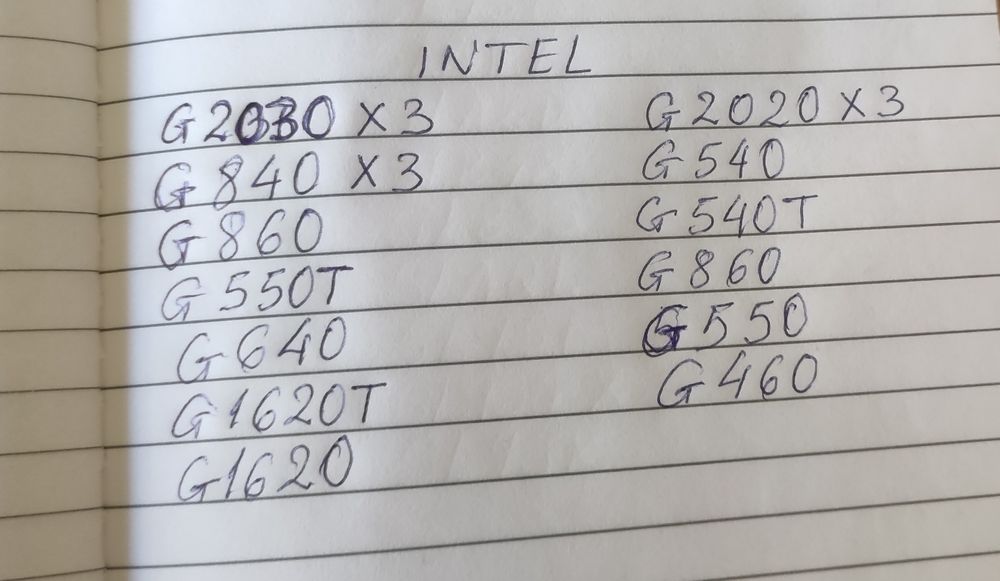 INTEL
G2030 X 3
G 840 X 3
G 860
G 550T
G 640
G 1620T
G1620
G2020 X 3
G 540
G 540T
G 860
G 550
G 460